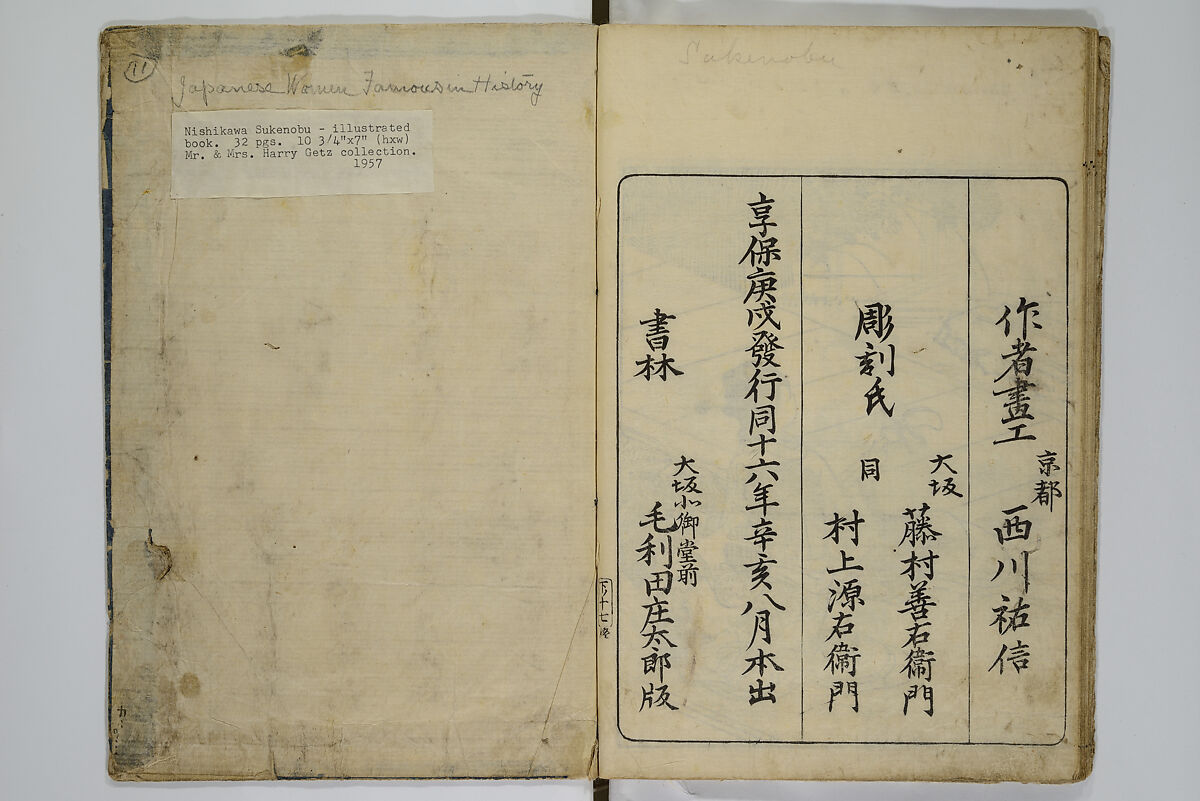 11
Japanese Women Famous in History
Nishikawa Sukenobu - illustrated
book. 32 pgs. 10 3/4"x7" (hxw)
Mr. & Mrs. Harry Getz collection.
1957
Sukenobu
作者畫工 京都 西川祐信
彫刻氏 大坂 藤村善右衞門
同 村上源右衞門
享保庚戌發行同十六年辛亥八月本出
書林 大坂北御堂前 毛利田庄太郎版
下ノ十七終